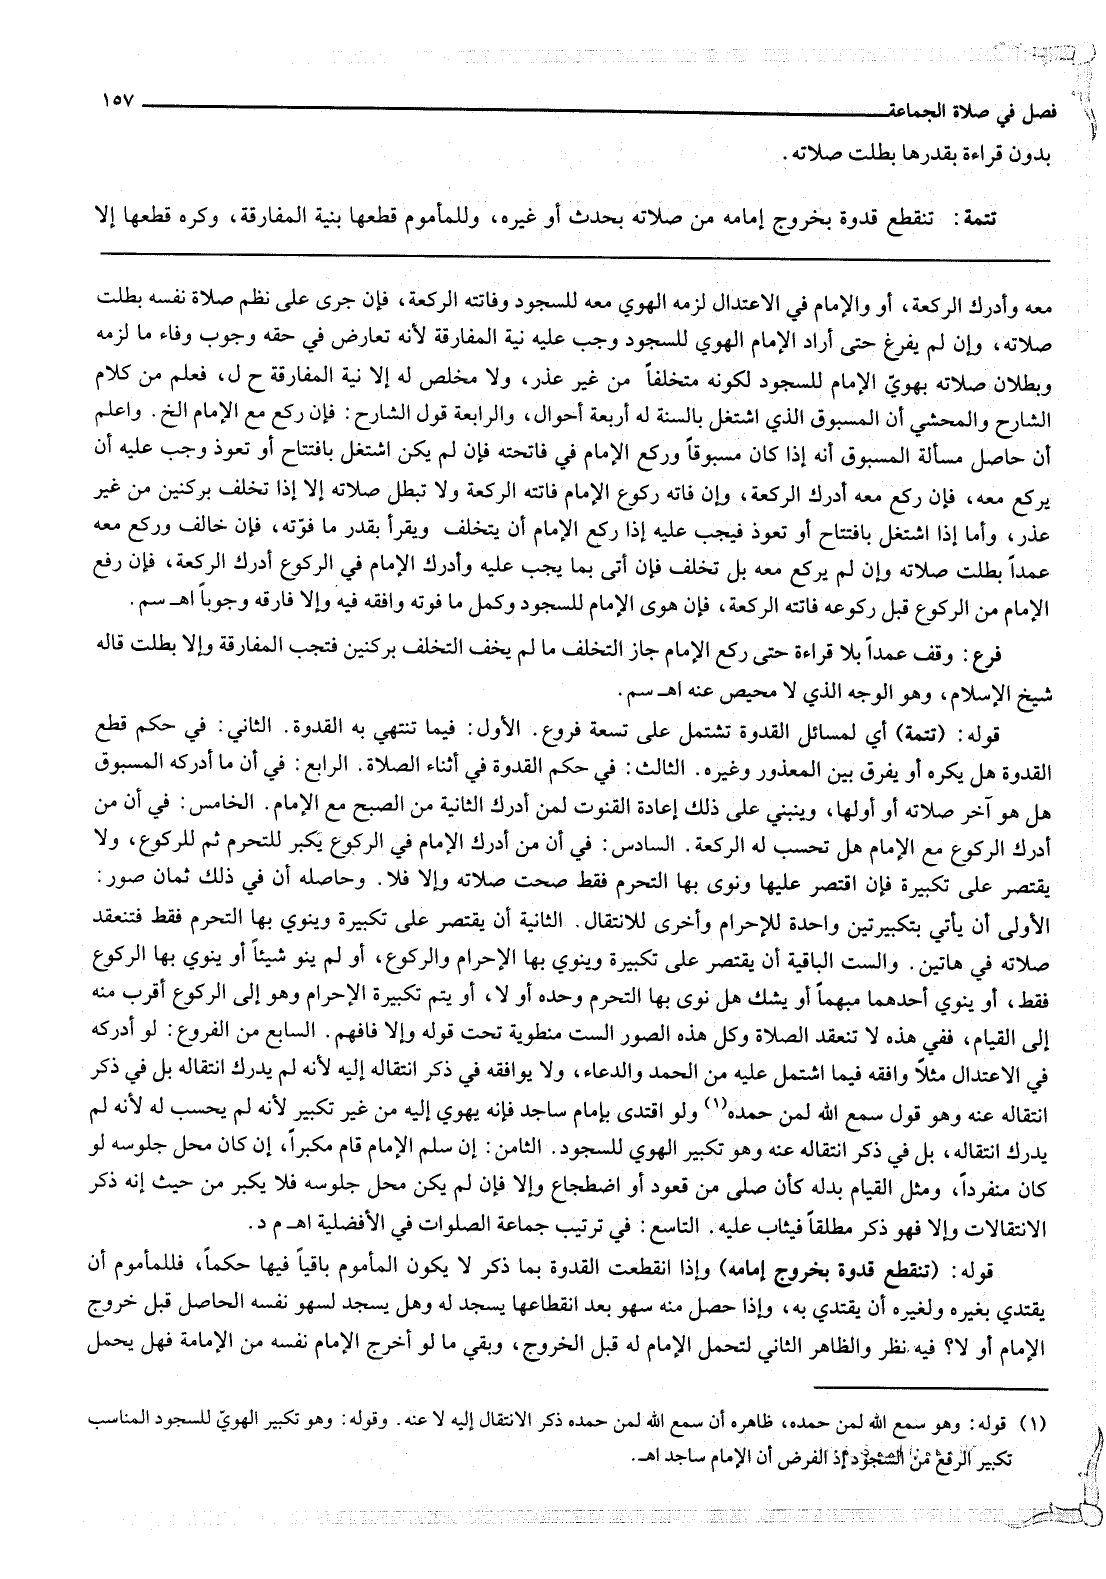 فصل في صلاة الجماعة ١٥٧
بدون قراءة بقدرها بطلت صلاته.
تتمة: تنقطع قدوة بخروج إمامه من صلاته بحدث أو غيره، وللمأموم قطعها بنية المفارقة، وكره قطعها إلا
معه وأدرك الركعة، أو والإمام في الاعتدال لزمه الهوي معه للسجود وفاتته الركعة، فإن جرى على نظم صلاة نفسه بطلت
صلاته، وإن لم يفرغ حتى أراد الإمام الهوي للسجود وجب عليه نية المفارقة لأنه تعارض في حقه وجوب وفاء ما لزمه
وبطلان صلاته بهويّ الإمام للسجود لكونه متخلفاً من غير عذر، ولا مخلص له إلا نية المفارقة ح ل، فعلم من كلام
الشارح والمحشي أن المسبوق الذي اشتغل بالسنة له أربعة أحوال، والرابعة قول الشارح: فإن ركع مع الإمام الخ. واعلم
أن حاصل مسألة المسبوق أنه إذا كان مسبوقاً وركع الإمام في فاتحته فإن لم يكن اشتغل بافتتاح أو تعوذ وجب عليه أن
يركع معه، فإن ركع معه أدرك الركعة، وإن فاته ركوع الإمام فاتته الركعة ولا تبطل صلاته إلا إذا تخلف بركنين من غير
عذر، وأما إذا اشتغل بافتتاح أو تعوذ فيجب عليه إذا ركع الإمام أن يتخلف ويقرأ بقدر ما فوّته، فإن خالف وركع معه
عمداً بطلت صلاته وإن لم يركع معه بل تخلف فإن أتى بما يجب عليه وأدرك الإمام في الركوع أدرك الركعة، فإن رفع
الإمام من الركوع قبل ركوعه فاتته الركعة، فإن هوى الإمام للسجود وكمل ما فوته وافقه فيه وإلا فارقه وجوباً اهـ سم.
فرع: وقف عمداً بلا قراءة حتى ركع الإمام جاز التخلف ما لم يخف التخلف بركنين فتجب المفارقة وإلا بطلت قاله
شيخ الإسلام، وهو الوجه الذي لا محيص عنه اهـ سم.
قوله: (تتمة) أي لمسائل القدوة تشتمل على تسعة فروع. الأول: فيما تنتهي به القدوة. الثاني: في حكم قطع
القدوة هل يكره أو يفرق بين المعذور وغيره. الثالث: في حكم القدوة في أثناء الصلاة. الرابع: في أن ما أدركه المسبوق
هل هو آخر صلاته أو أولها، وينبني على ذلك إعادة القنوت لمن أدرك الثانية من الصبح مع الإمام. الخامس: في أن من
أدرك الركوع مع الإمام هل تحسب له الركعة. السادس: في أن من أدرك الإمام في الركوع يكبر للتحرم ثم للركوع، ولا
يقتصر على تكبيرة فإن اقتصر عليها ونوى بها التحرم فقط صحت صلاته وإلا فلا. وحاصله أن في ذلك ثمان صور:
الأولى أن يأتي بتكبيرتين واحدة للإحرام وأخرى للانتقال. الثانية أن يقتصر على تكبيرة وينوي بها التحرم فقط فتنعقد
صلاته في هاتين. والست الباقية أن يقتصر على تكبيرة وينوي بها الإحرام والركوع، أو لم ينو شيئاً أو ينوي بها الركوع
فقط، أو ينوي أحدهما مبهماً أو يشك هل نوى بها التحرم وحده أو لا، أو يتم تكبيرة الإحرام وهو إلى الركوع أقرب منه
إلى القيام، ففي هذه لا تنعقد الصلاة وكل هذه الصور الست منطوية تحت قوله وإلا فافهم. السابع من الفروع: لو أدركه
في الاعتدال مثلاً وافقه فيما اشتمل عليه من الحمد والدعاء، ولا يوافقه في ذكر انتقاله إليه لأنه لم يدرك انتقاله بل في ذكر
انتقاله عنه وهو قول سمع الله لمن حمده(١) ولو اقتدى بإمام ساجد فإنه يهوي إليه من غير تكبير لأنه لم يحسب له لأنه لم
يدرك انتقاله، بل في ذكر انتقاله عنه وهو تكبير الهوي للسجود. الثامن: إن سلم الإمام قام مكبراً، إن كان محل جلوسه لو
كان منفرداً، ومثل القيام بدله كأن صلى من قعود أو اضطجاع وإلا فإن لم يكن محل جلوسه فلا يكبر من حيث إنه ذكر
الانتقالات وإلا فهو ذكر مطلقاً فيثاب عليه. التاسع: في ترتيب جماعة الصلوات في الأفضلية اهـ م د.
قوله: (تنقطع قدوة بخروج إمامه) وإذا انقطعت القدوة بما ذكر لا يكون المأموم باقياً فيها حكماً، فللمأموم أن
يقتدي بغيره ولغيره أن يقتدي به، وإذا حصل منه سهو بعد انقطاعها يسجد له وهل يسجد لسهو نفسه الحاصل قبل خروج
الإمام أو لا؟ فيه نظر والظاهر الثاني لتحمل الإمام له قبل الخروج، وبقي ما لو أخرج الإمام نفسه من الإمامة فهل يحمل
(١) قوله: وهو سمع الله لمن حمده، ظاهره أن سمع الله لمن حمده ذكر الانتقال إليه لا عنه. وقوله: وهو تكبير الهويّ للسجود المناسب
تكبير الرفع من السجود إذ الفرض أن الإمام ساجد اهـ.